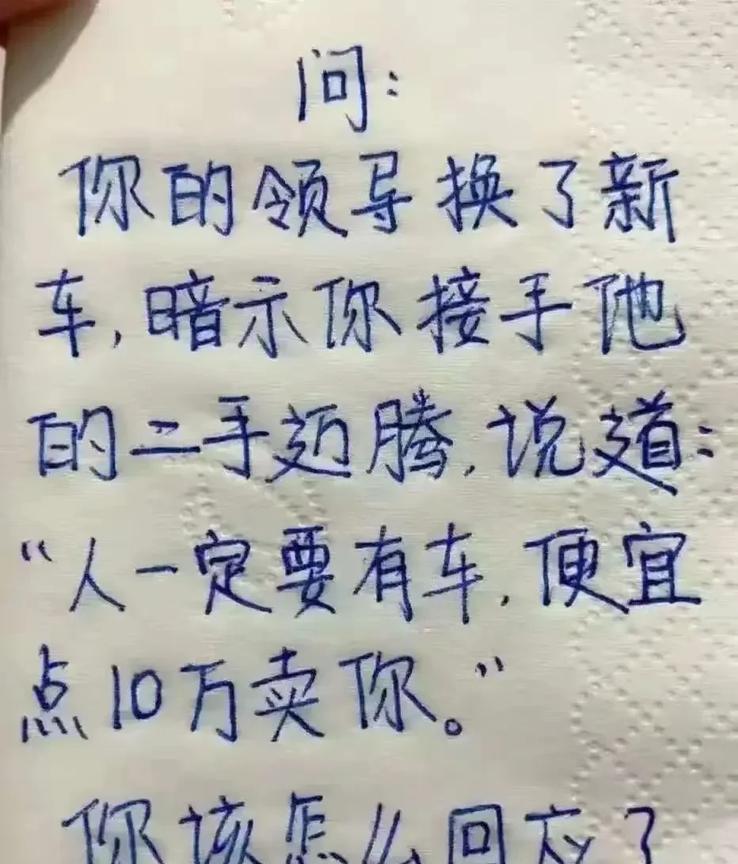 问:
你的领导换了新
车,暗示你接手他
的二手迈腾,说道:
“人一定要有车,便宜
点10万卖你。”
你该怎么回应?